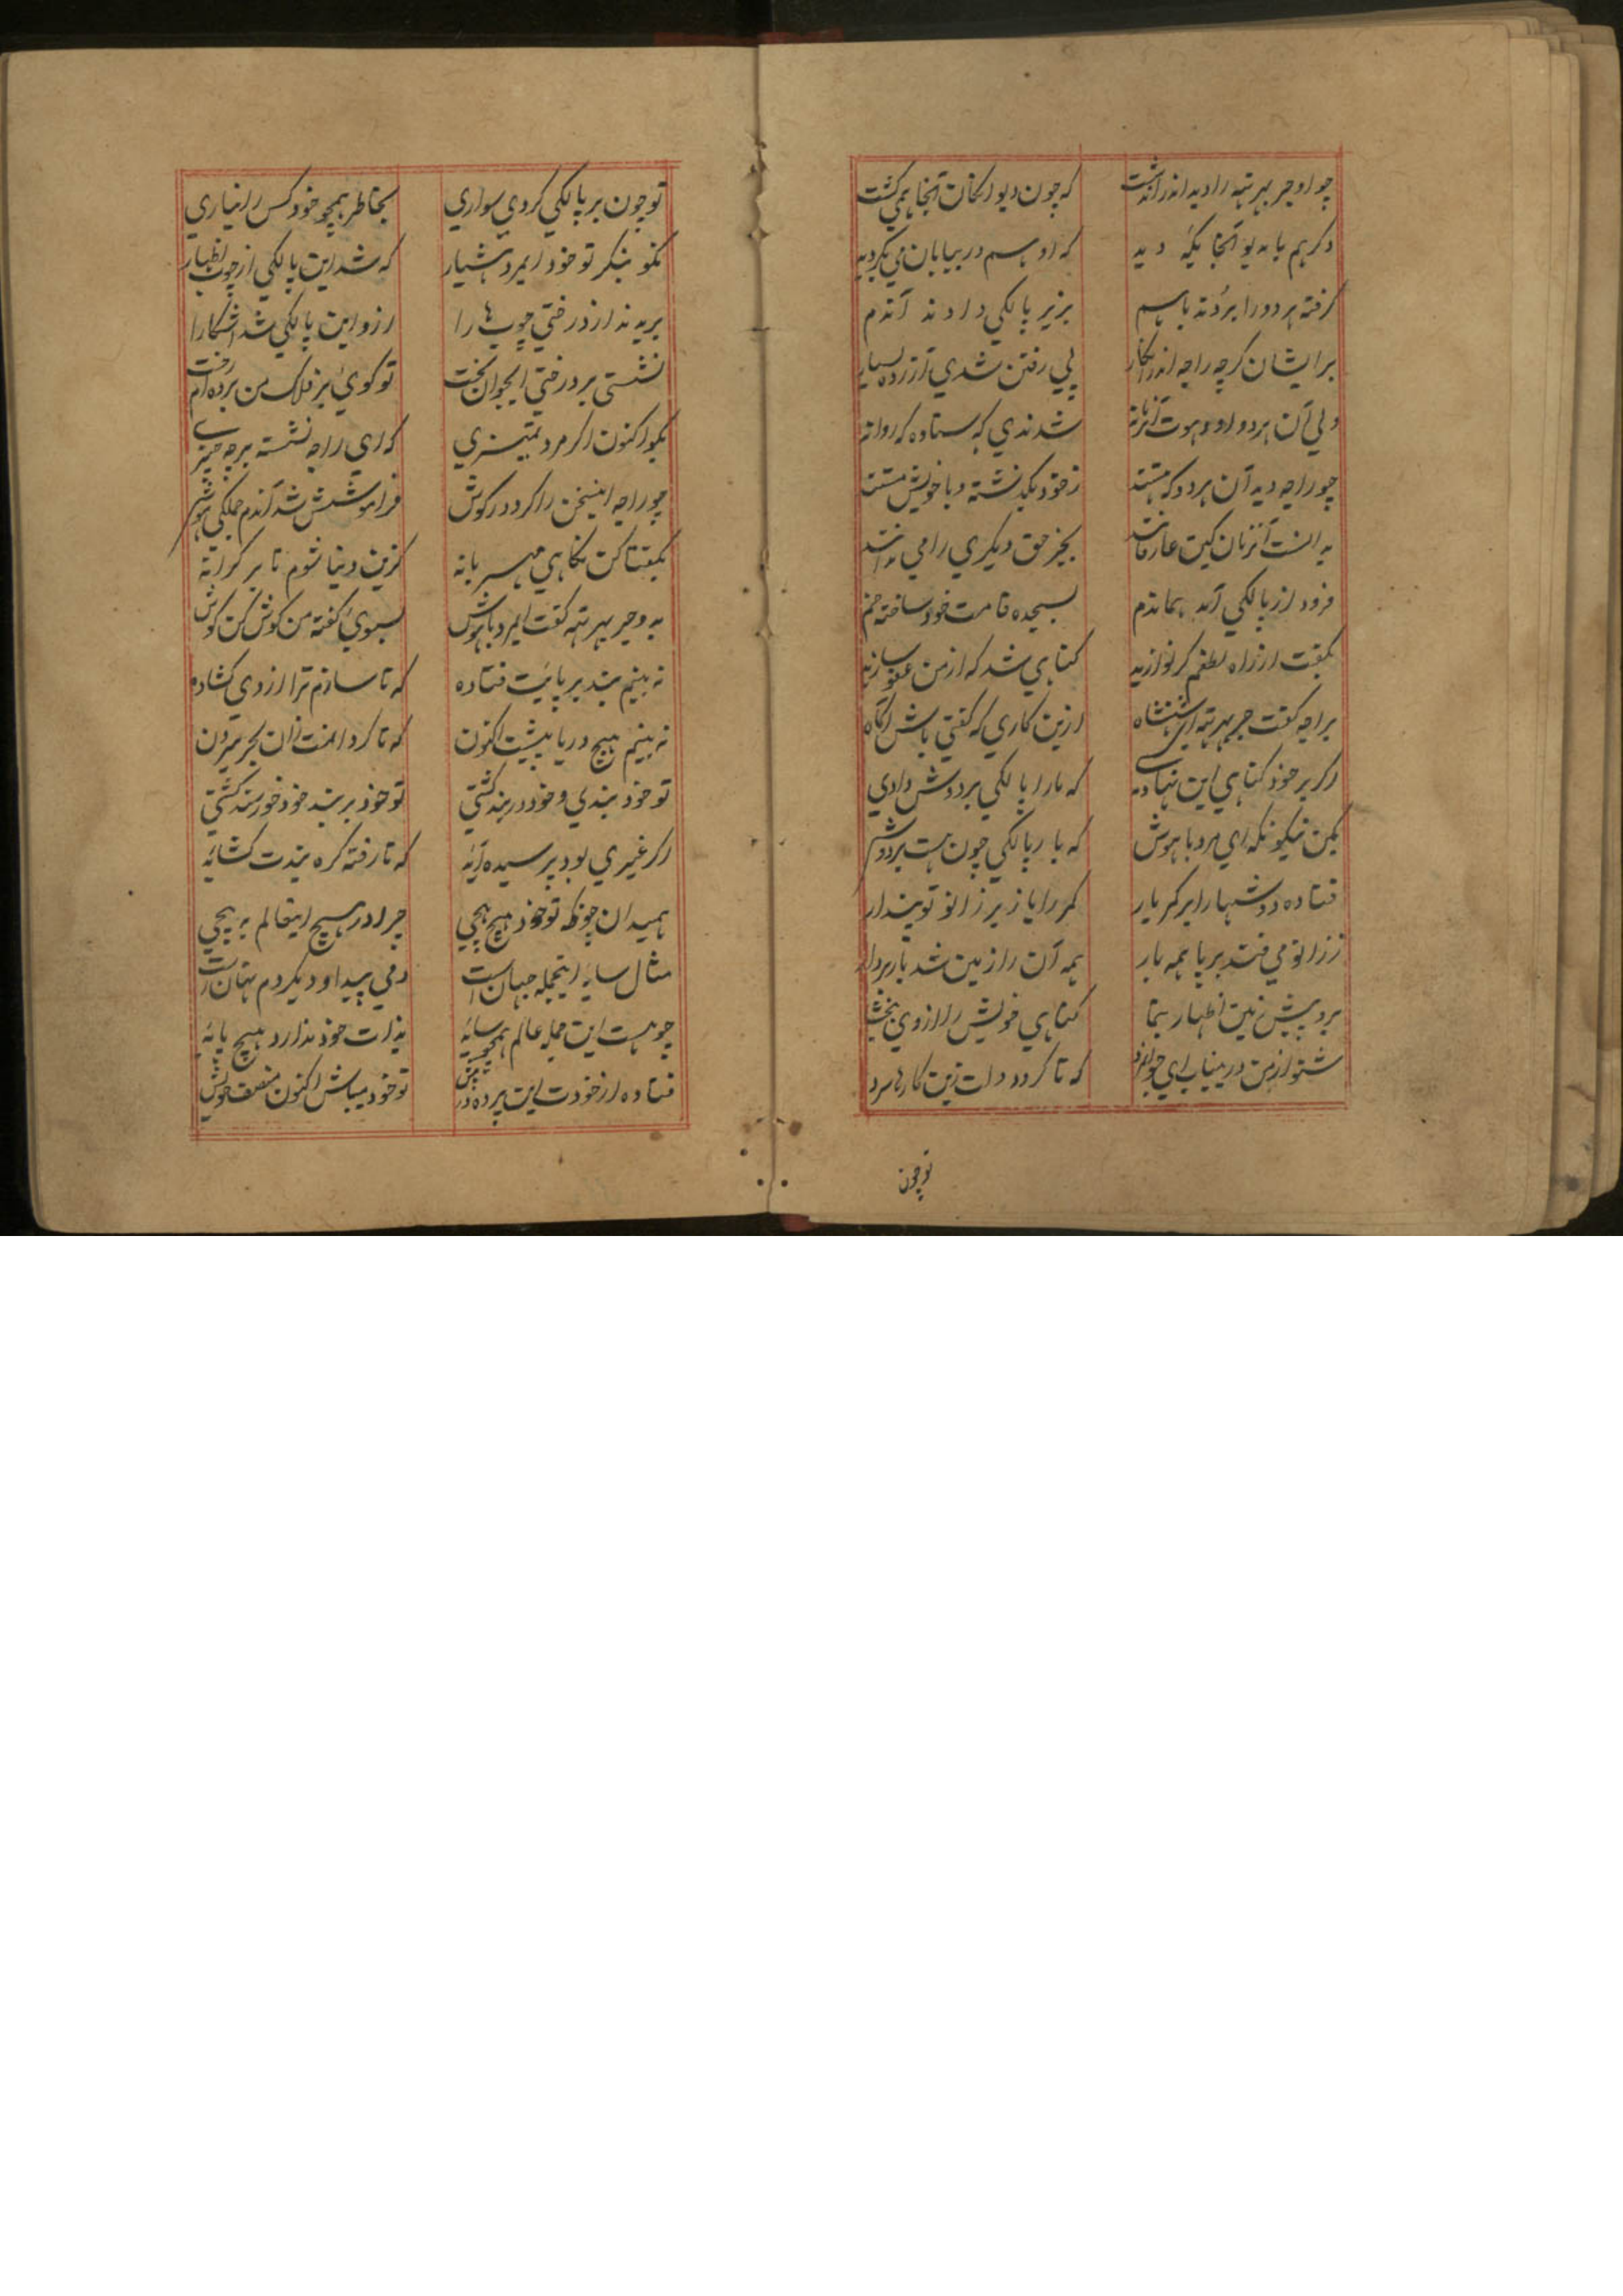 چو او جربهرتهه را دید اندر اندشت که چون دیوانکان آنجا همی کشت
دکر هم بامدیو آنجا یکی دید که او هم در بیابان می بکردید
کرفته هر دو را بردند باهم بزیر پالکی دادند آندم
برایشان کرچه راجه اندر انکار پی رفتن شدی آزرده بسیار
ولی آن هر دو شدندی که ستاده که روانه
چو راجه دید آن هر دو که هستند زخود بکذشته و با خویش مستند
بدانست آنزمان کین عارفانند بجز حق دیکری را می ندانند
فرود از پالکی آمد هماندم بسجده قامت خود ساخته خم
بکفت از راه لطفم کر نوازید کناهی شد که از من عفو سازید
براجه کفت جربهرتهه ای شهنشاه ازین کاری که کفتی باش آکاه
اکر بر خود کناهی این نهادی که مارا پالکی بر دوش دادی
ببین نیکو نکه ای مرد باهوش که بار پالکی چون هست بر دوش
فتاده دوشها را بر کمر بار کمر را باز بر زانو تو پندار
ززانو می فتد بر پا همه بار همه آن را زمین شد بار بردار
برو پیش زمین اظهار بنما کناهی خویش را از وی ببخشا
شنو از من درینباب ای جوانمرد که تا کردد دلت زین کارها سرد
تو چون
تو چون بر پالکی کردی سواری بخاطر همچو خود کس را نیاری
نکو بنکر تو خود ایمرد هشیار که شد این پالکی از چوب اظهار
بریدند از درختی چوب ها را ازو این پالکی شد آشکارا
نشستی بر درختی ایجوان بخت تو کوئی بر فلک من برده ام رخت
بکو اکنون اکر مرد تمیزی که ای راجه نشسته بر چه چیزی
چو راجه اینسخن را کرد در کوش فراموشش شد آندم جملکی هوش
بکفتا کن نکاهی مهربانه کزین دنیا شوم تا بر کرانه
بدو جربهرتهه کفت ایمرد باهوش بسوی کفته من کوش کن کوش
نه بینم بند بر پایت فتاده که تا سازم ترا از وی کشاده
نه بینم هیچ دریا پیشت اکنون که تا کردانمت زان بحر بیرون
تو خود بندی و خود در بند کشتی تو خود بر بند خود خورسند کشتی
اکر غیری بود بر سیدهٔ آید که تا رفته کره بندت کشاید
همیدان چونکه تو خود هیچ هیچی چرا در هیچ اینعالم به پیچی
مثال سایه اینجمله جهان است دمی پیدا و دیکر دم نهان است
چو هست این جمله عالم همچو سایه بذات خود ندارد هیچ پایه
فتاده از خودت این پرده در پیش تو خود میباش اکنون منصف خویش